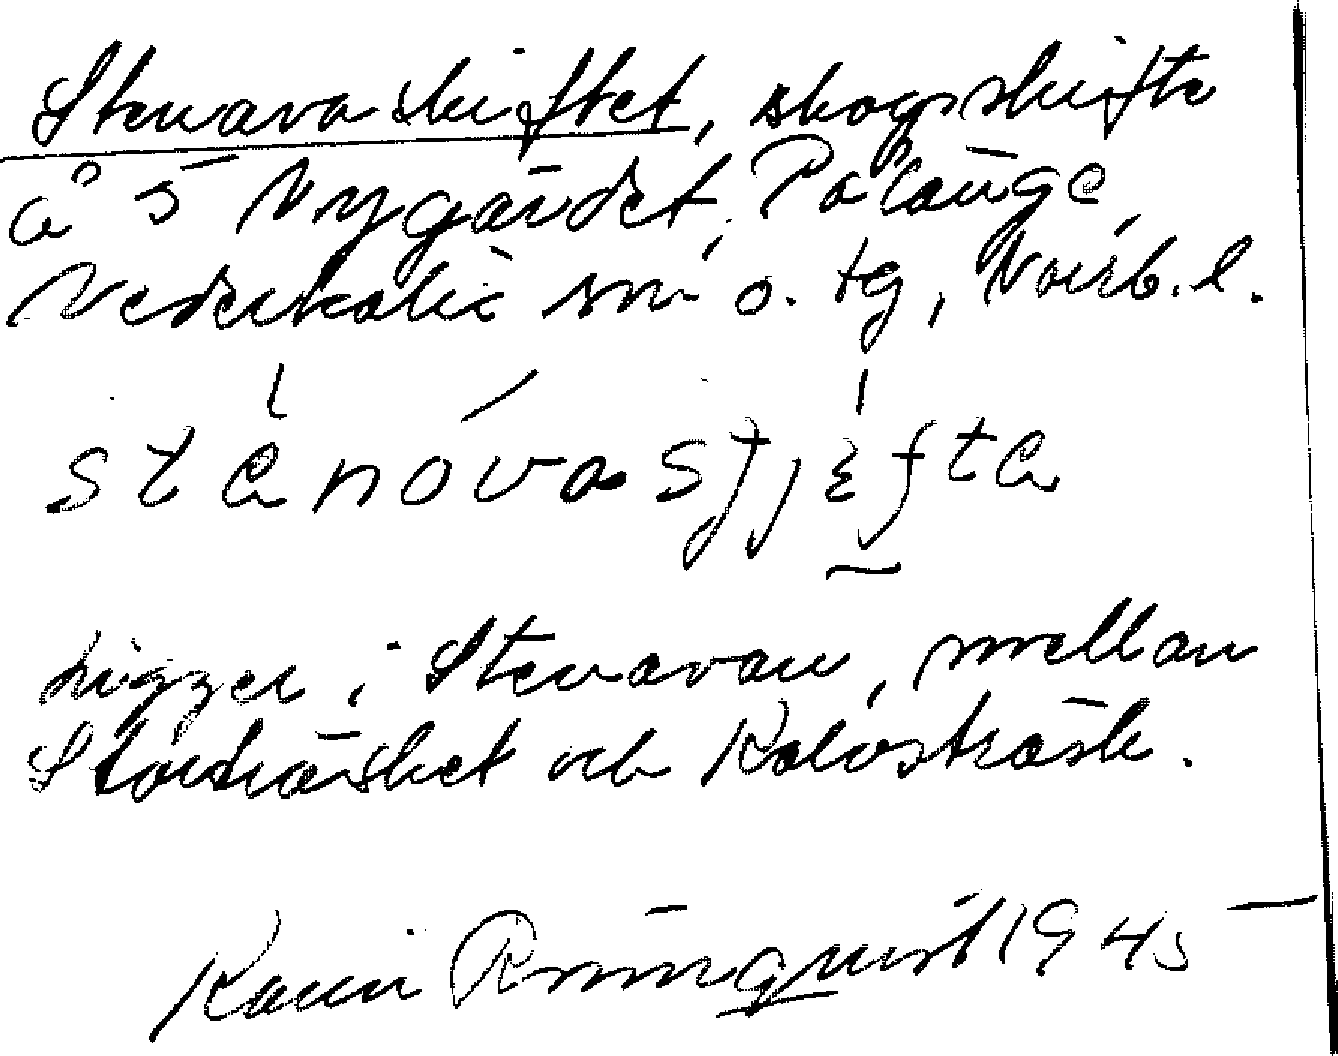 Stenavaskiftet, skogsskifte
å 5 Nygärdet, Pålänge,
Nederkalix sn o. tg, Norrb. l.
stenóvasjęfta
Ligger i Stenavan, mellan
Storträsket och Kalvsträsk.
Karin Rönnquist 1945